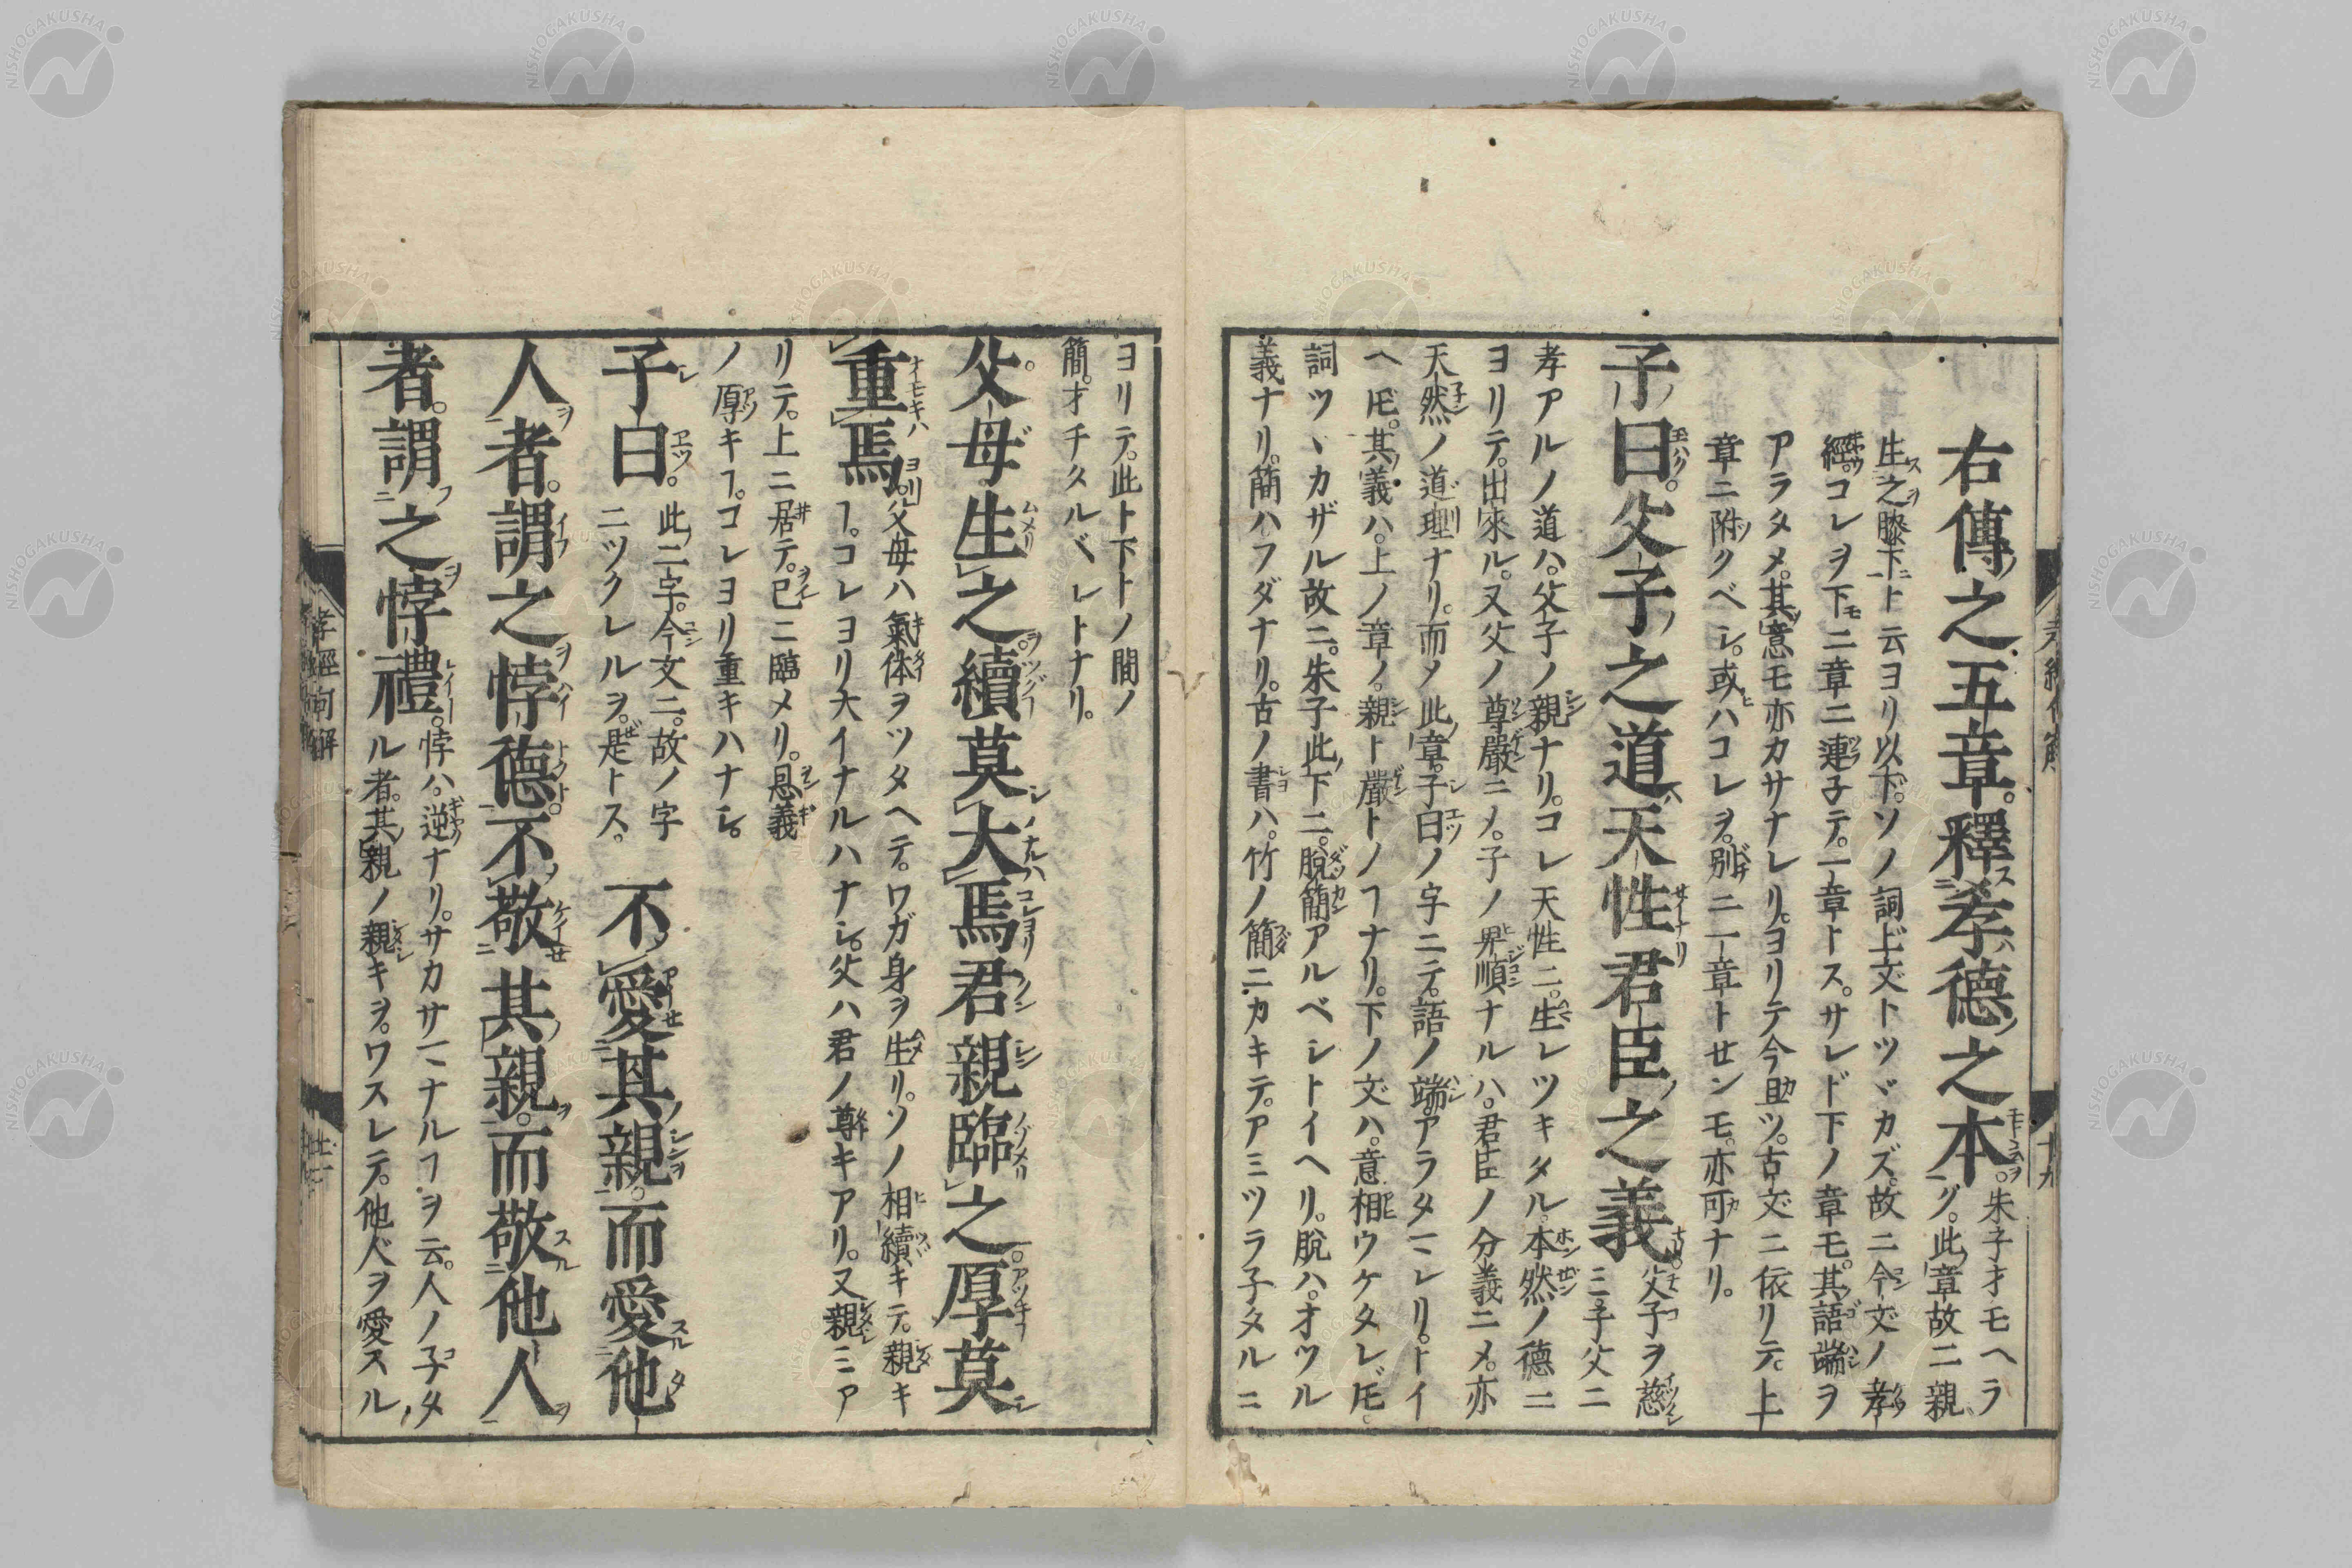 右傳之五章。釋孝德之本。朱子オモヘラ
グ。此章故ニ親
生之膝下ト云ヨリ以下。ソノ詞上文トツヾカズ。故ニ今文ノ孝
經。コレヲ下モニ章ニ連子テ。一章トス。サレド下ノ章モ。其語端ヲ
アラタメ。其意モ亦カサナレリ。ヨリテ今且ツ。古文ニ依リテ。上
章ニ附クベシ。或ハコレヲ。別ニ一章トセンモ。亦可ナリ。
子曰。父子之道天性君臣之義父子ヲ慈
ミ子父ニ
孝アルノ道ハ。父子ノ親ナリ。コレ天性ニ。生レツキタル。本然ノ德ニ
ヨリテ。出來ル。又父ノ尊嚴ニ乄。子ノ卑順ナルハ。君臣ノ分義ニ乄。亦
天然ノ道理ナリ。而乄此章。子曰ノ字ニテ。語ノ端。アラタマレリ。トイ
ヘ𪜈。其義ハ。上ノ章ノ。親ト嚴トノヿナリ。下ノ文ハ。意相ウケタレ𪜈。
詞ツヾカザル故ニ。朱子此下ニ。脫簡アルベシトイヘリ。脫ハ。オツル
義ナリ。簡ハフダナリ。古ノ書ハ。竹ノ簡ニカキテ。アミツラ子タルニ
ヨリテ。此ト下トノ間ノ
簡。オチタルベレトナリ。
父母生之。續莫大焉君親臨之。厚莫
重焉。父母ハ氣体ヲツタヘテ。ワガ身ヲ生リ。ソノ相續キテ。親キ
ヿ。コレヨリ大イナルハナシ。父ハ君ノ尊キアリ。又親ミア
リテ。上ニ居テ。已ニ臨メリ。恩義
ノ厚キヿ。コレヨリ重キハナシ。
子曰。此二字。今文ニ。故ノ字
ニツクレルヲ。是トス。不愛其親。而愛他
人者。謂之悖德。不敬其親。而敬他人
者。謂之悖禮。悖ハ。逆ナリ。サカサマニナルヿヲ云。人ノ子タ
ル者。其親ノ親キヲ。ワスレテ。他人ヲ愛スル
孝經句解